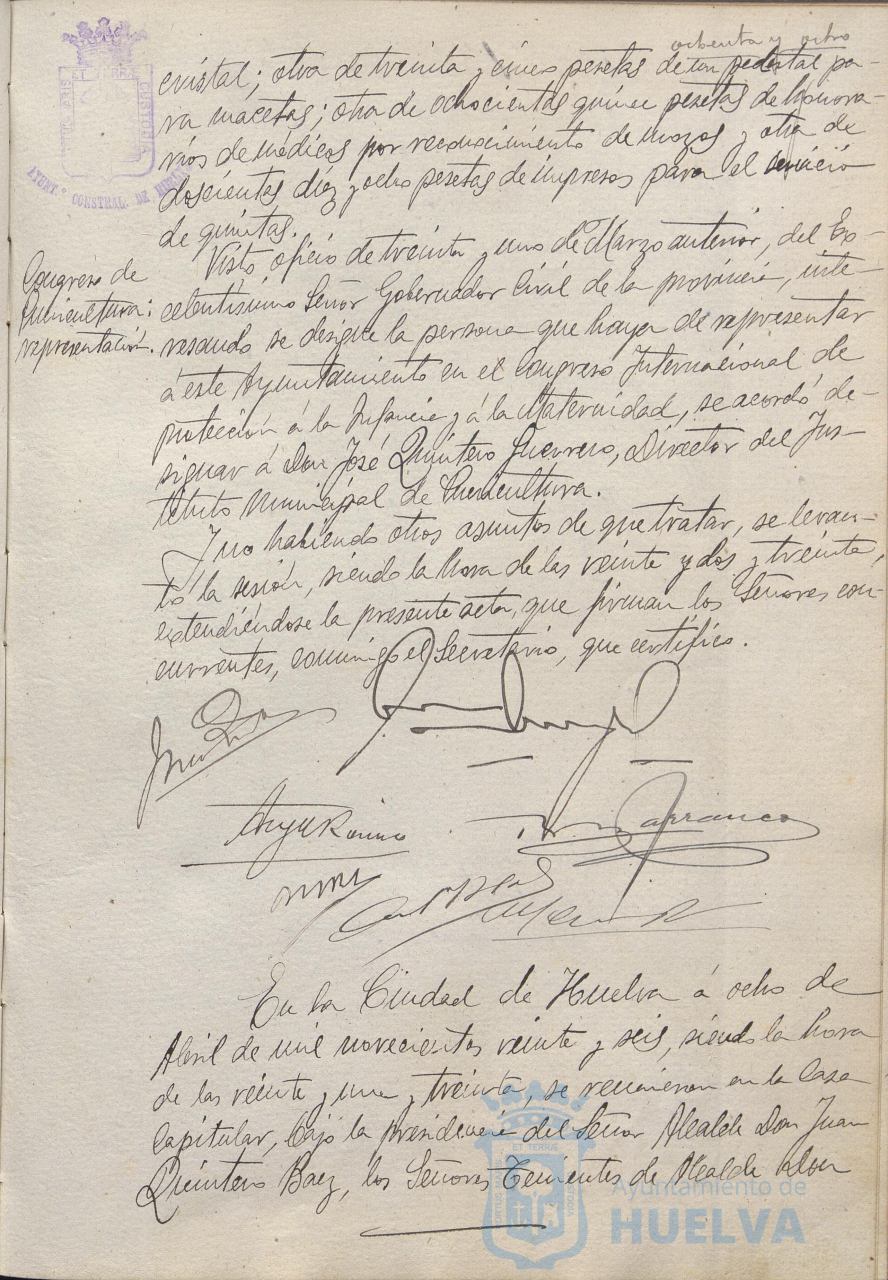 ochenta y ocho
cristal; otra de treinta y cinco pesetas de un pedestal pa-
ra macetas; otra de ochocientas quince pesetas de honora-
rios de médicos por reconocimiento de mozos y otra de
doscientas diez y ocho pesetas de impresos para el servicio
de quintas.
Congreso de
Puericultura:
representación.
Visto oficio de treinta y uno de Marzo anterior, del Ex-
celentísimo Señor Gobernador Civil de la provincia, inte-
resando se designe la persona que haya de representar
á este Ayuntamiento en el Congreso Internacional de
protección á la Infancia y á la Maternidad, se acordó de-
signar á Don José Quintero Guerrero, Director del Ins-
tituto Municipal de Puericultura.
Y no habiendo otros asuntos de que tratar, se levan-
tó la sesión, siendo la hora de las veinte y dos y treinta,
extendiéndose la presente acta, que firman los Señores con-
currentes, conmigo el Secretario, que certifico.
En la Ciudad de Huelva á ocho de
Abril de mil novecientos veinte y seis, siendo la hora
de las veinte y una y treinta, se reunieron en la Casa
Capitular, bajo la presidencia del Señor Alcalde Don Juan
Quintero Baez, los Señores Tenientes de Alcalde Don
Ayuntamiento de
HUELVA